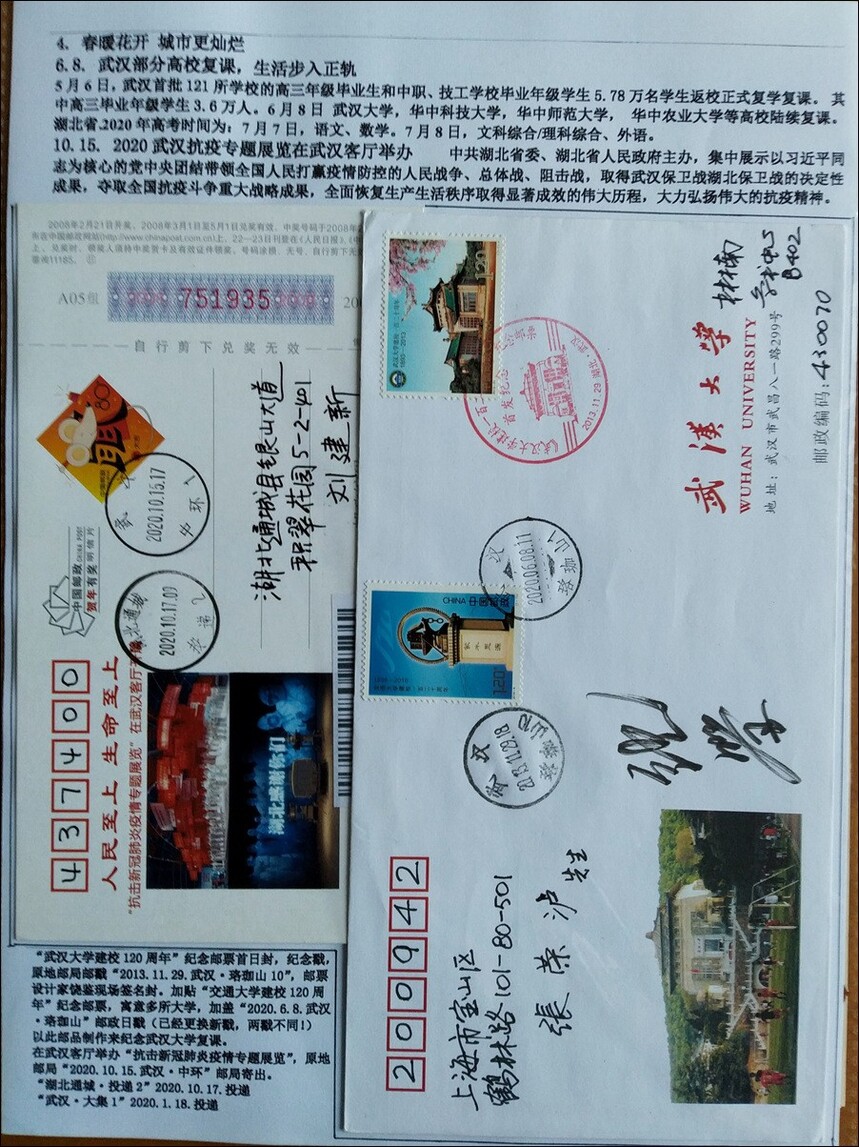 4. 春暖花开 城市更灿烂
6.8. 武汉部分高校复课，生活步入正轨
5月6日，武汉首批121所学校的高三年级毕业生和中职、技工学校毕业年级学生5.78万名学生返校正式复学复课。其
中高三毕业年级学生3.6万人。6月8日 武汉大学，华中科技大学，华中师范大学， 华中农业大学等高校陆续复课。
湖北省.2020年高考时间为：7月7日，语文、数学。7月8日，文科综合/理科综合、外语。
10.15. 2020 武汉抗疫专题展览在武汉客厅举办 中共湖北省委、湖北省人民政府主办，集中展示以习近平同
志为核心的党中央团结带领全国人民打赢疫情防控的人民战争、总体战、阻击战，取得武汉保卫战湖北保卫战的决定性
成果，夺取全国抗疫斗争重大战略成果，全面恢复生产生活秩序取得显著成效的伟大历程，大力弘扬伟大的抗疫精神。
2008年2月21日开奖，2008年3月1日至5月1日兑奖有效，中奖号码于2008年
政网站(http://www.chinapost.com.cn)上，22—23日刊登在《人民日报》
上。兑奖时，领奖人须持中奖贺卡及有效证件领奖，号码涂损、无号、自行剪下无
11185。
A05组 751935 20
自行剪下兑奖无效
80
2020.10.15.17
中国邮政 CHINA POST
贺年有奖明信片
2020.10.17.09
湖北通城县银山大道
积翠花园5-2-401
刘建新
437400
人民至上 生命至上
“抗击新冠肺炎疫情专题展览”在武汉客厅举办
湖北感谢你们
武汉大学建校一百二十周年
1893-2013
武汉大学建校一百二
首发纪念
2013.11.29 湖北·武汉
武漢大学
WUHAN UNIVERSITY
地址：武汉市武昌八一路299号
邮政编码：430070
林楠
B402
2020.06.08.11
珞珈山1
CHINA 中国邮政
1.20元
1896-2016
武汉
2013.11.29.18
珞珈山10
200942
上海市宝山区
鹤林路101-80-501
張荣沪 先生
“武汉大学建校120周年”纪念邮票首日封，纪念戳，
原地邮局邮戳“2013.11.29.武汉·珞珈山10”，邮票
设计家饶鉴现场签名封。加贴“交通大学建校120周
年”纪念邮票，寓意多所大学，加盖“2020.6.8.武汉
·珞珈山”邮政日戳（已经更换新戳，两戳不同！）
以此邮品制作来纪念武汉大学复课。
在武汉客厅举办“抗击新冠肺炎疫情专题展览”，原地
邮局“2020.10.15.武汉·中环”邮局寄出。
“湖北通城·投递2”2020.10.17.投递
“武汉·大集1”2020.1.18.投递